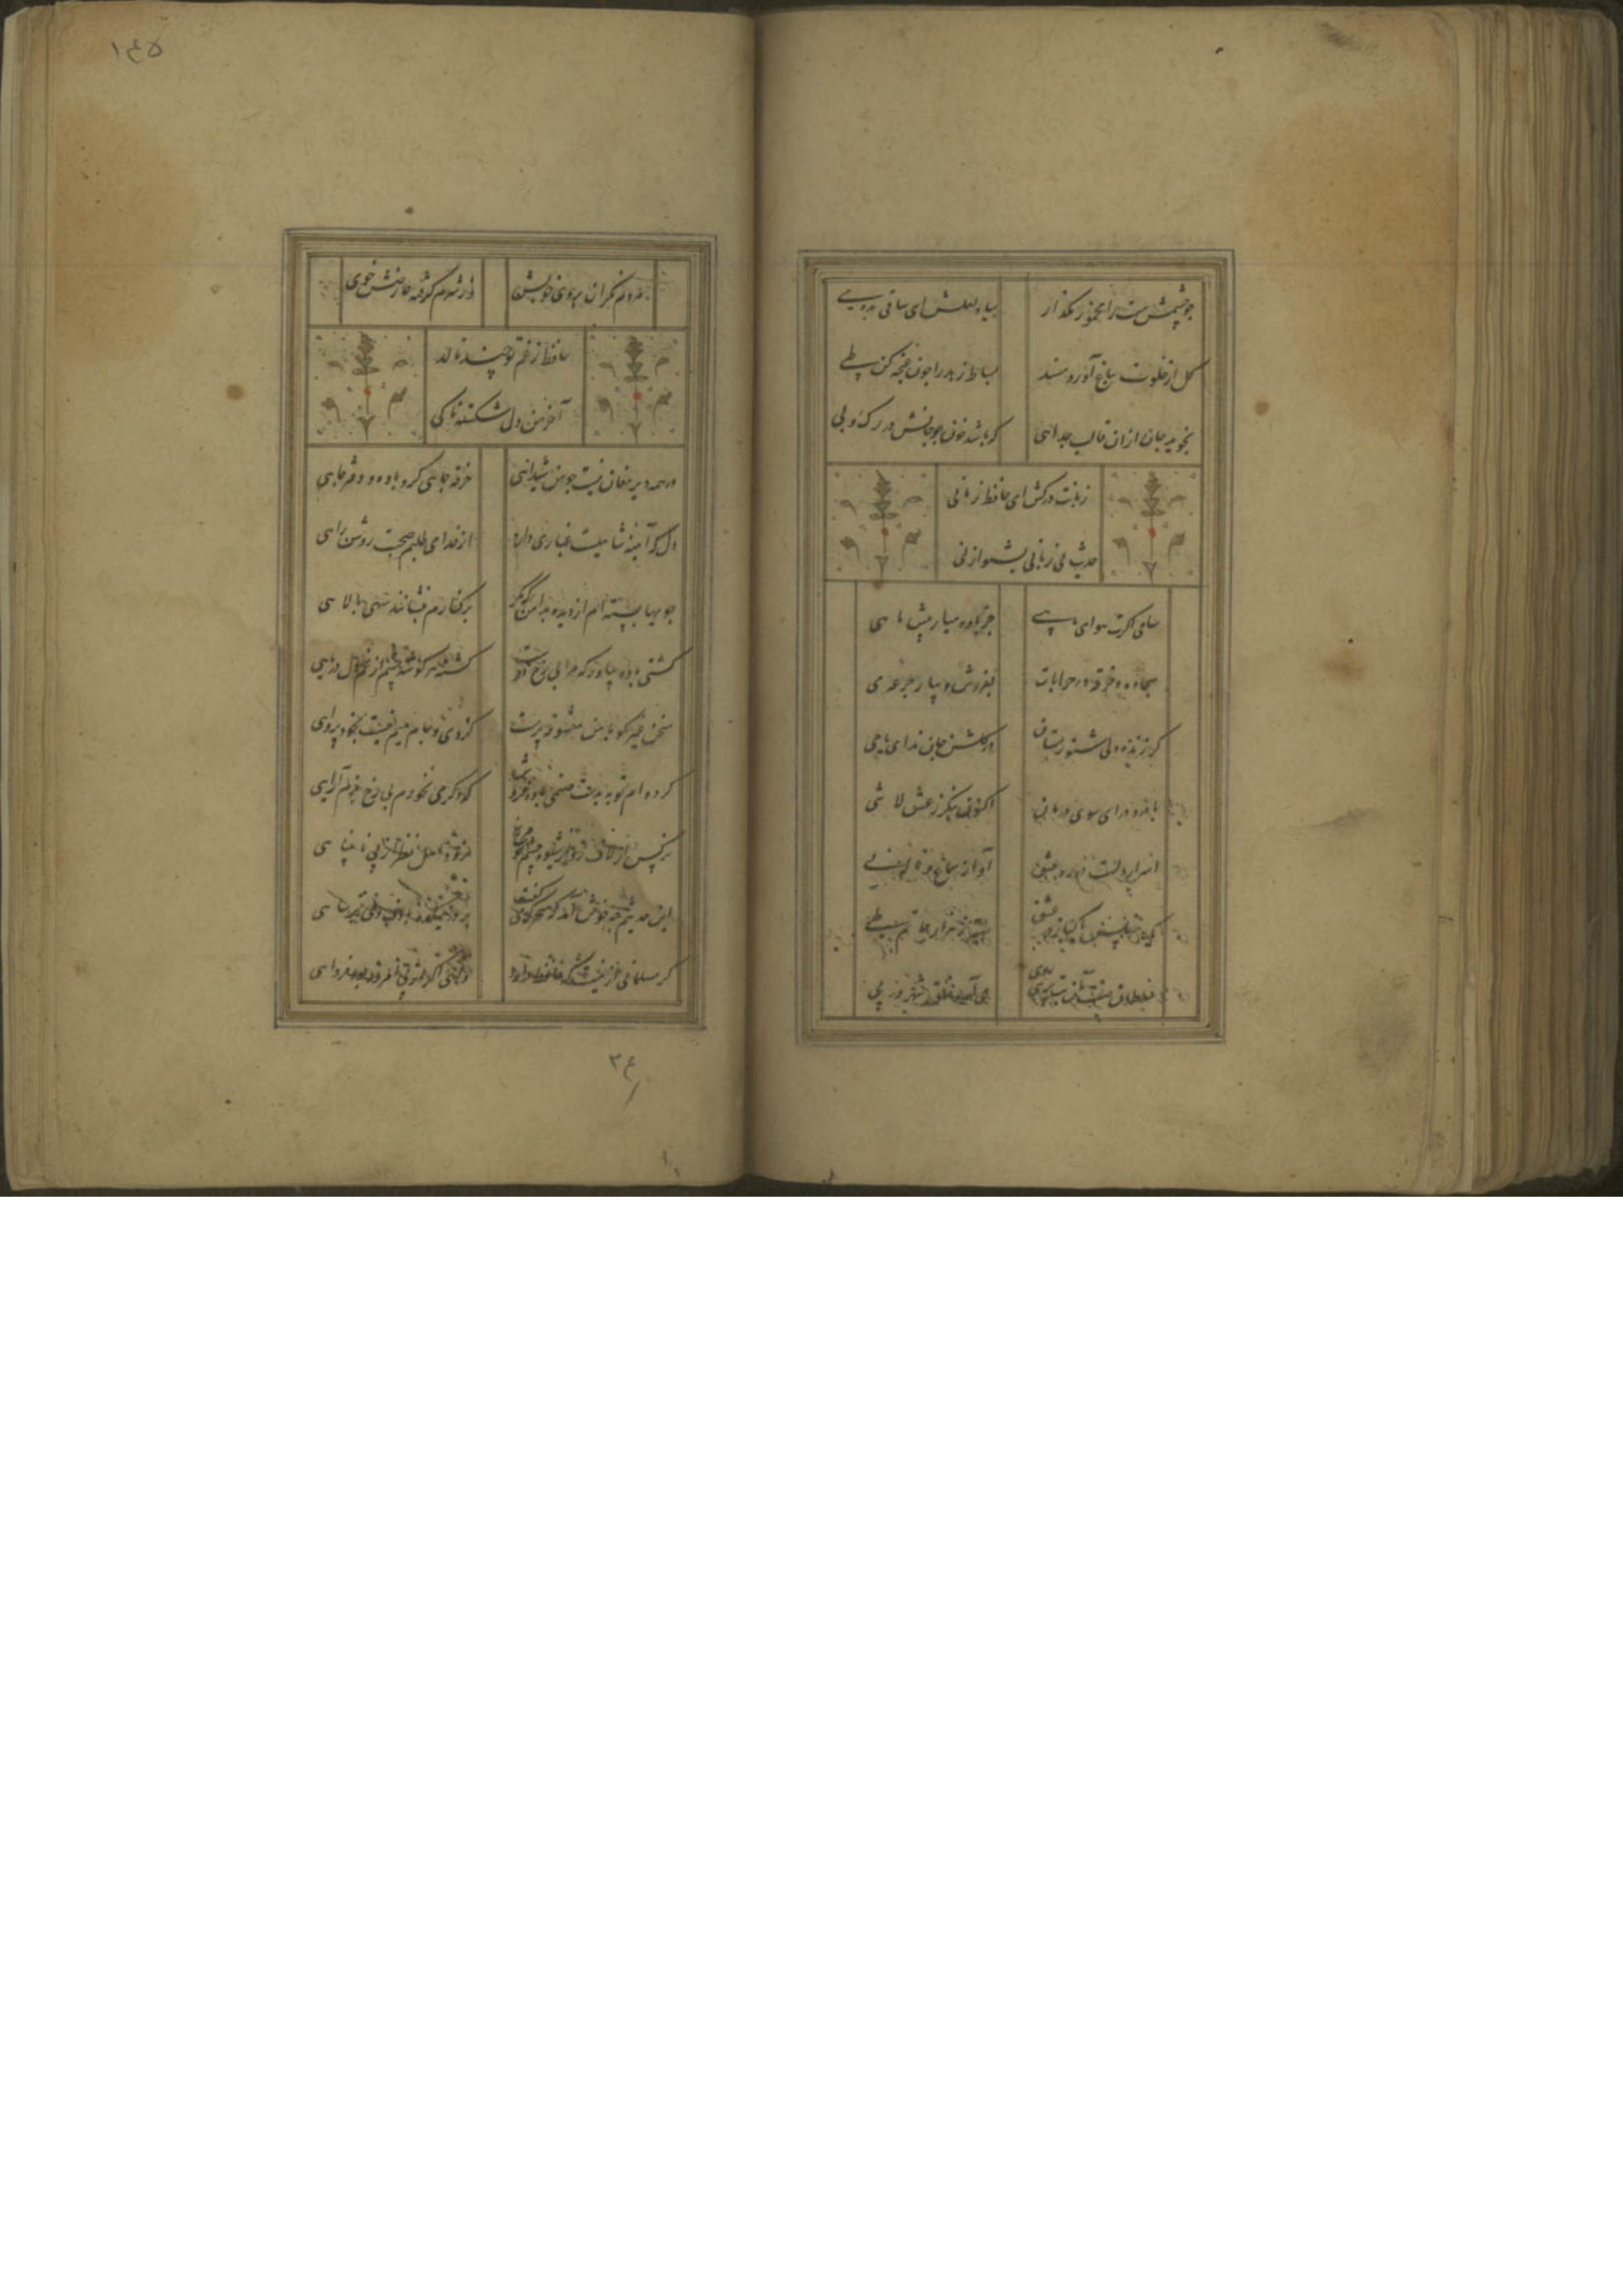 چو چشمش مست را مخمور مگذار
بیاد لعلش ای ساقی بده می
گل از خلوت بباغ آورد مسند
بساط زهد را چون غنچه کن طی
نجوید جان ازان قالب جدائی
که باشد خون جو جانش در رگ و پی
زبانت درکش ای حافظ زمانی
حدیث بی زبانی بشنو از نی
ساقی اگرت هوای ما هی
جز باده میار پیش ما شی
سجاده و خرقه در خرابات
بفروش و بیار جرعه می
گر زنده دلی شنو ز مستان
در گلشن جان ندای یا حی
با درد درای سوی درمان
کونین نگر ز عشق لا شی
اسرار دلست در ره عشق
آواز سماع و ناله نی
بهتر ز هزار حاتم طی
سلطان صفت آن بت پری روی
می آمد و خلق شهر در پی
مردم نگران بروی خوبش
وز شرم گرفته عارضش خوی
حافظ ز غم تو چند نالد
آخر من دل شکسته تا کی
در همه دیر مغان نیست چو من شیدائی
خرقه جائی گرو باده و دفتر جائی
دل که آینه شاهیست غباری دارد
از خدا می طلبم صحبت روشن رائی
جویها بسته ام از دیده بدامن که مگر
بر کنارم بنشانند سهی بالائی
کشتی باده بیاور که مرا بی رخ دوست
گشته هر گوشه چشم از غم دل دریائی
سخن غیر مگو با من معشوقه پرست
کز وی و جام میم نیست بکس پروائی
کرده ام توبه بدست صنمی باده فروش
که دگر می نخورم بی رخ بزم آرائی
نرگس ار لاف زد از شیوه چشم تو مرنج
نروند اهل نظر از پی نابینائی
این حدیثم چه خوش آمد که سحرگه میگفت
بر در میکده با دف و نی ترسائی
گر مسلمانی ازینست که حافظ دارد
وای اگر از پی امروز بود فردائی
۱۴۵